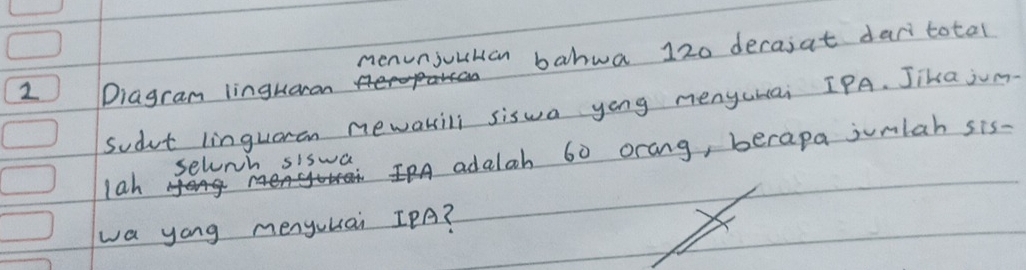 2 Diagram lingkaran menunjukkan bahwa 120 derajat dari total
sudut lingkaran mewakili siswa yang menyukai IPA. Jika jum-
lah seluruh siswa adalah 60 orang, berapa jumlah sis-
wa yang menyukai IPA?